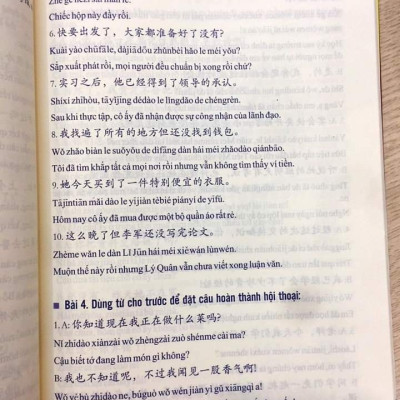 Chiếc hộp này đầy rồi.
6.快要出发了，大家都准备好了没有?
Kuài yào chūfāle, dàjiādōu zhǔnbèi hǎo le méi yǒu?
Sắp xuất phát rồi, mọi người đều chuẩn bị xong rồi chứ?
7.实习之后，他已经得到了领导的承认。
Shíxí zhīhòu, tā yǐjīng dédào le lǐngdǎo de chéngrèn.
Sau khi thực tập, cô ấy đã nhận được sự công nhận của lãnh đạo.
8.我找遍了所有的地方但还没找到钱包。
Wǒ zhǎo biàn le suǒyǒu de dìfāng dàn hái méi zhǎodào qiánbāo.
Tôi đã tìm khắp tất cả mọi nơi rồi nhưng vẫn không tìm thấy ví tiền.
9.她今天买到了一件特别便宜的衣服。
Tā jīntiān mǎi dào le yījiàn tèbié piányí de yīfú.
Hôm nay cô ấy đã mua được một bộ quần áo rất rẻ.
10.这么晚了但李军还没写完论文。
Zhème wǎn le dàn Lǐ Jūn hái méi xiě wán lùnwén.
Muộn thế này rồi nhưng Lý Quân vẫn chưa viết xong luận văn.
Bài 4. Dùng từ cho trước để đặt câu hoàn thành hội thoại:
1.A:你知道现在我正在做什么菜吗?
Nǐ zhīdào xiànzài wǒ zhèngzài zuò shénme cài ma?
Cậu biết tớ đang làm món gì không?
B:我也不知道呢，不过我闻见一股香气啊!
Wǒ yě bù zhīdào ne, bùguò wǒ wén jiàn yī gǔ xiāngqì a!